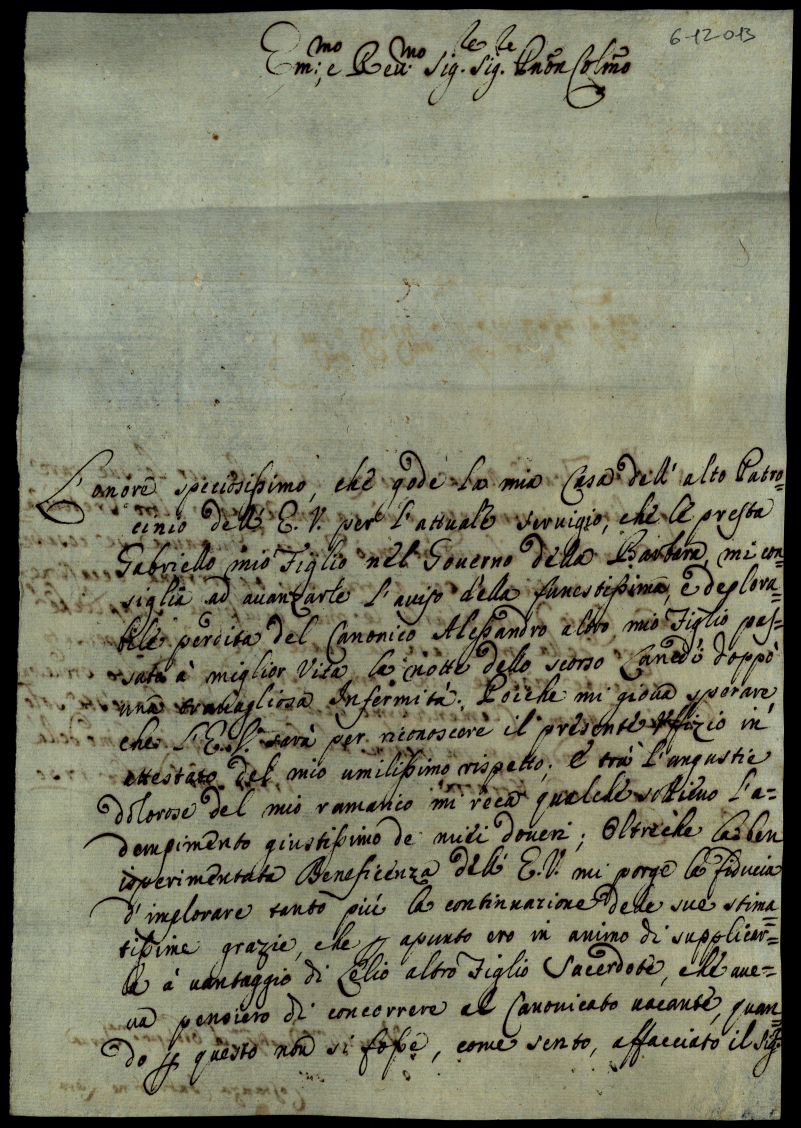 6-12013
Em:mo e Reu:mo Sig:re Sig:re Pnōn Colm̄o
L'onore speciosissimo, che gode la mia Casa dell'alto Patro=
cinio dell'E.V. per l'attuale seruigio, che le presta
Gabriello mio Figlio nel Gouerno della Barbara, mi con=
siglia ad auanzarle l'auiso della funestissima, e deplora=
bile perdita del Canonico Alessandro altro mio Figlio pas=
sato à miglior Vita la notte dello scorso Lunedì doppò
una trauagliosa Infermità. Poiche mi gioua sperare
che l'E.V. sarà per riconoscere il presente Vffizio in
attestato del mio umilissimo rispetto; e trà l'angustie
dolorose del mio ramarico mi reca qualche sollieuo l'a=
dempimento giustissimo de miei doueri; Oltreche la ben
isperimentata Beneficenza dell'E.V. mi porge la fiducia
d'implorare tanto più la continuazione delle sue stima=
tissime grazie, che apunto ero in animo di supplicar=
la à uantaggio di Lelio altro Figlio Sacerdote, che aue=
ua pensiero di concorrere al Canonicato uacante, quan=
do questo non si fosse, come sento, affacciato il Sig: